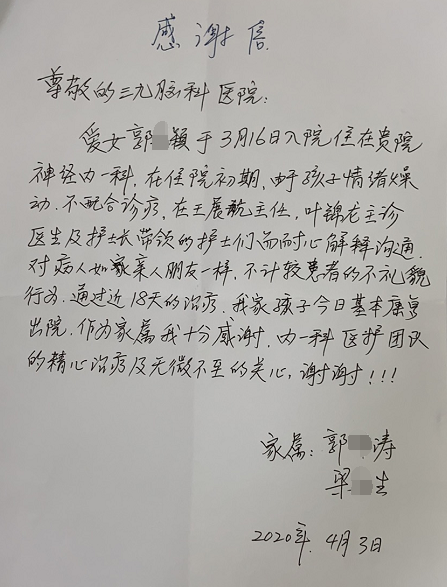 感谢信
尊敬的三九脑科医院:
爱女郭颖于3月16日入院住在贵院
神经内一科,在住院初期,由于孩子情绪燥
动,不配合诊疗,在王展航主任,叶锦龙主诊
医生及护士长带领的护士们面耐心解释沟通,
对病人如家亲人朋友一样,不计较患者的不礼貌
行为.通过近18天的治疗,我家孩子今日基本康复
出院.作为家属我十分感谢,内一科医护团队
的精心治疗及无微不至的关心,谢谢!!!
家属:郭涛
梁生
2020年.4月3日